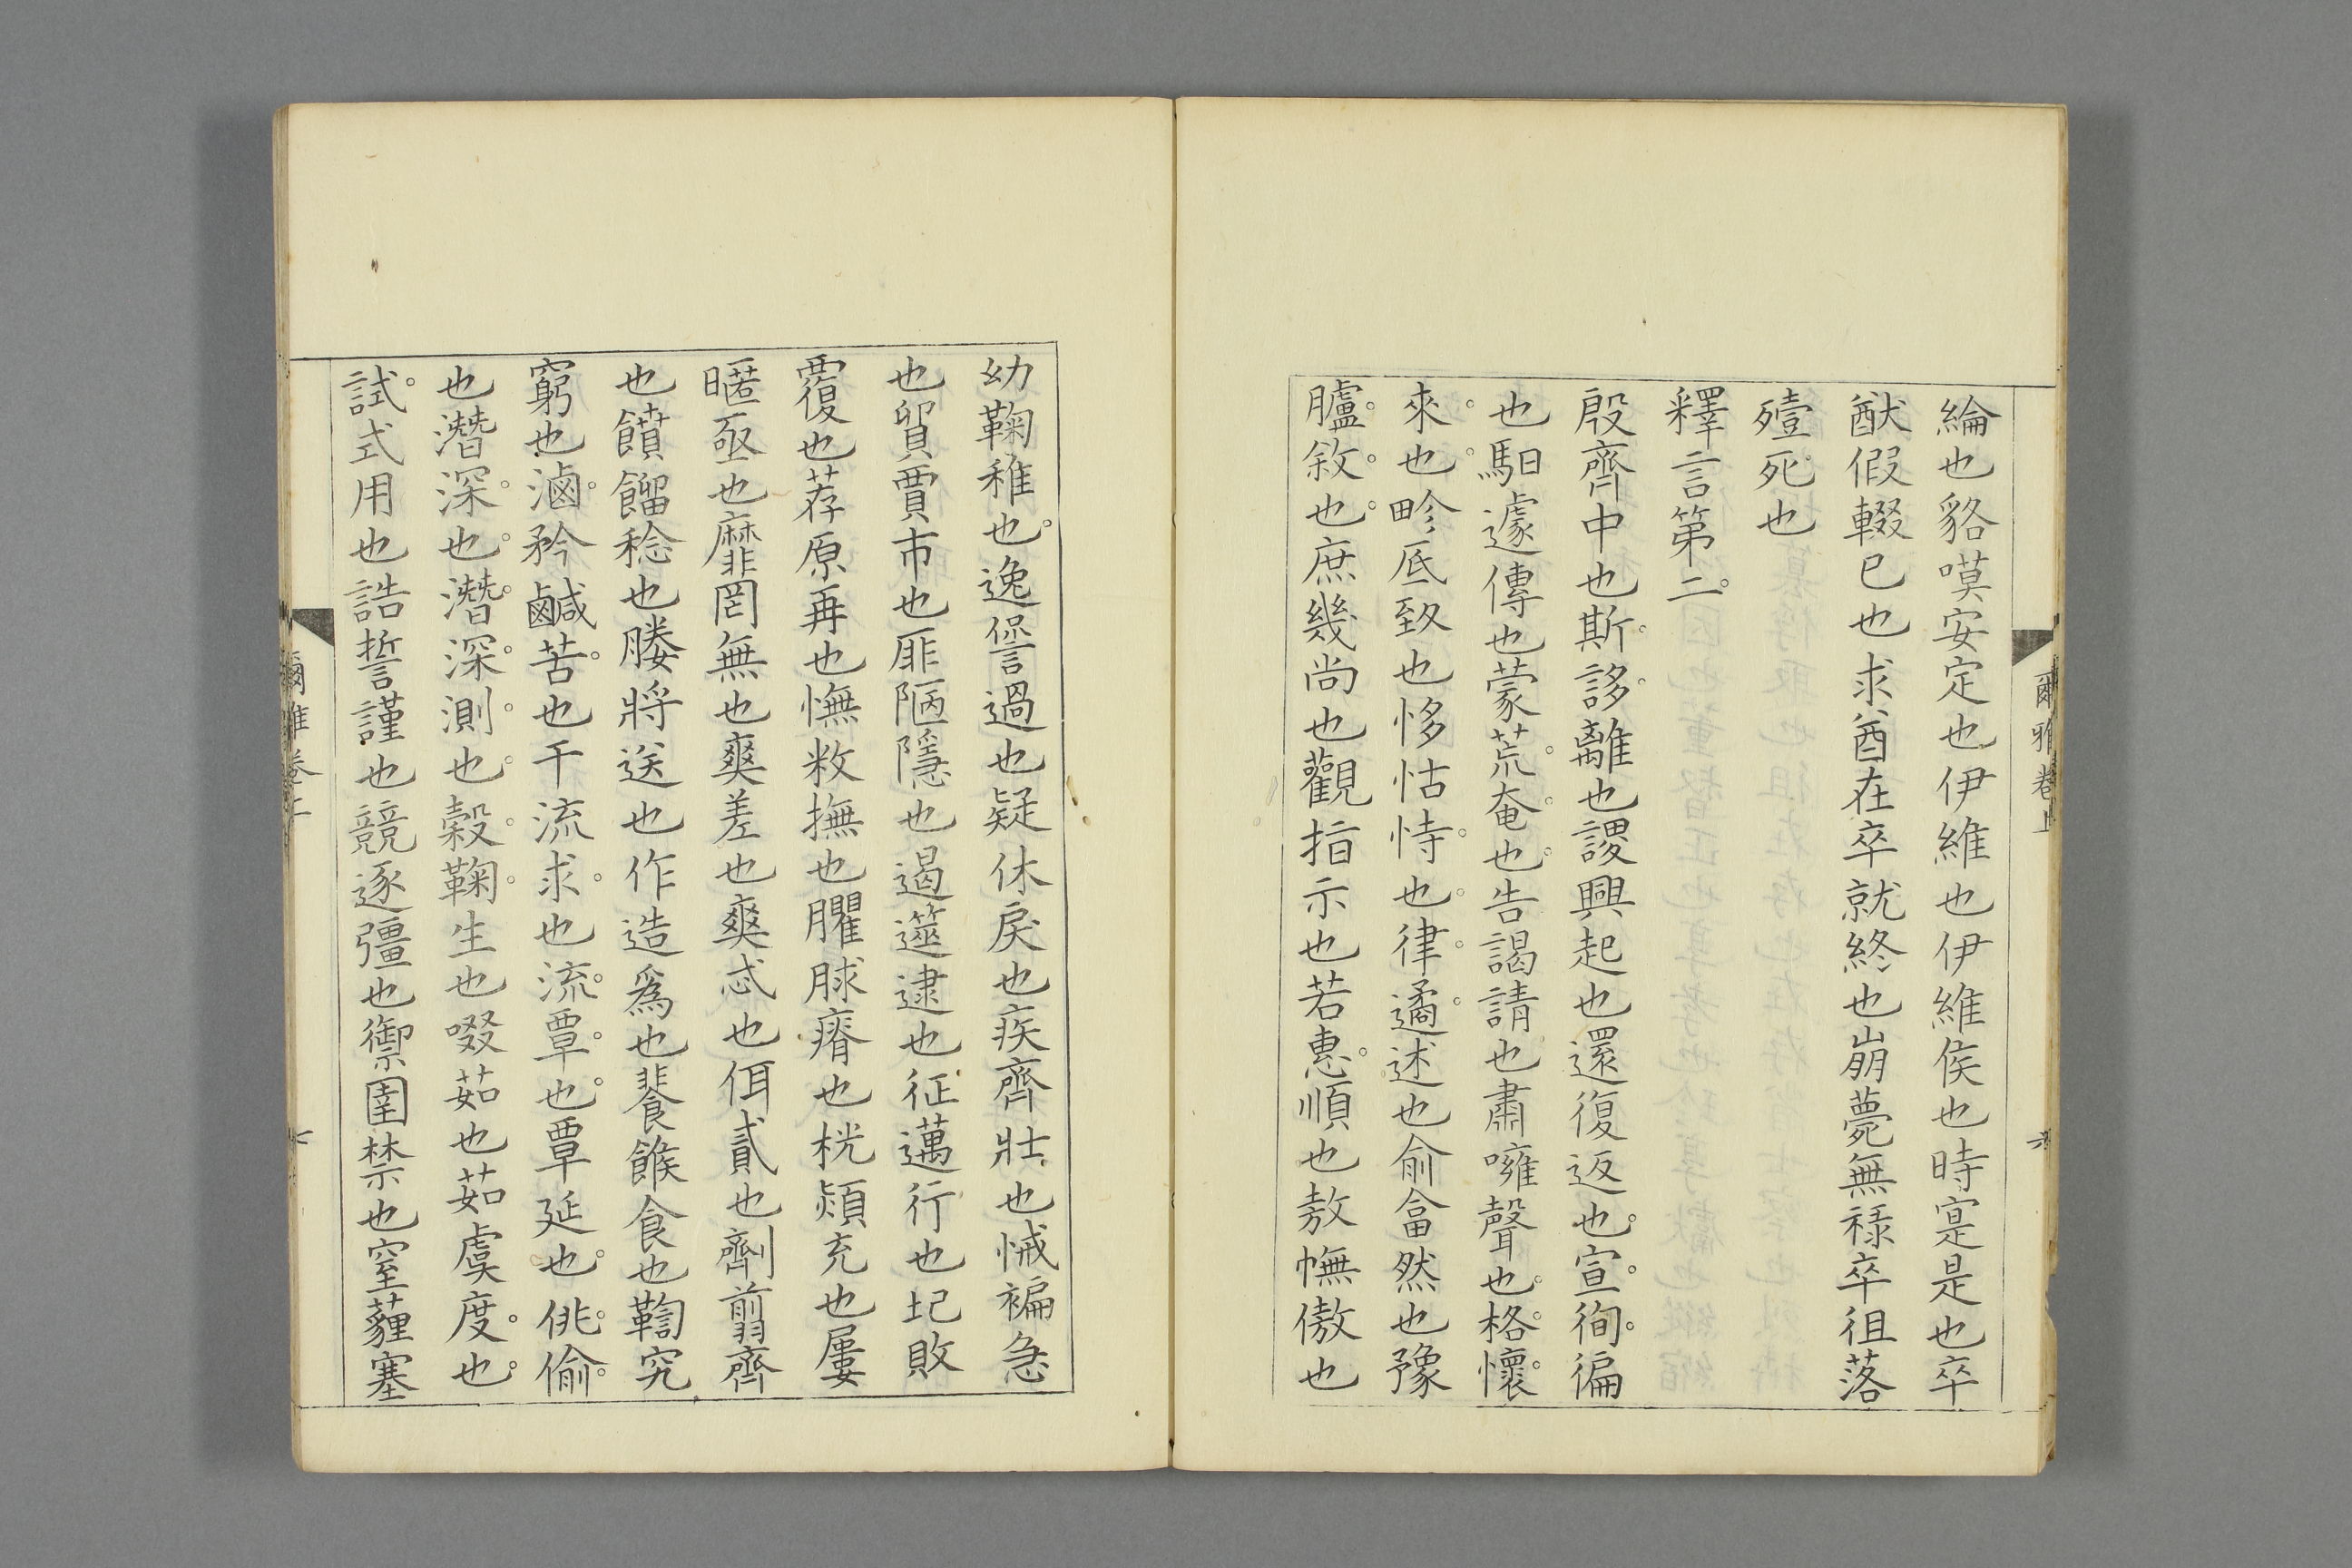 爾雅卷上
六
綸也貉嗼安定也伊維也伊維侯也時寔是也卒
猷假輟已也求酋在卒就終也崩薨無祿卒徂落
殪死也
釋言第二
殷齊中也斯誃離也謖興起也還復返也宣徇徧
也馹遽傳也蒙荒奄也告謁請也肅噰聲也格懷
來也畛厎致也恀怙恃也律遹述也俞畣然也豫
臚敘也庶幾尚也觀指示也若惠順也敖幠傲也
幼鞠稚也逸諐過也疑休戾也疾齊壯也悈褊急
也貿賈市也厞陋隱也遏遾逮也征邁行也圮敗
覆也荐原再也憮敉撫也臞脙瘠也桄熲充也屢
暱亟也靡罔無也爽差也爽忒也佴貳也劑翦齊
也饙餾稔也媵將送也作造爲也餥餱食也鞫究
窮也滷矜鹹苦也干流求也流覃也覃延也佻偷
也潛深也潛深測也穀鞠生也啜茹也茹虞度也
試式用也誥誓謹也競逐彊也禦圉禁也窒薶塞
爾雅卷上
七